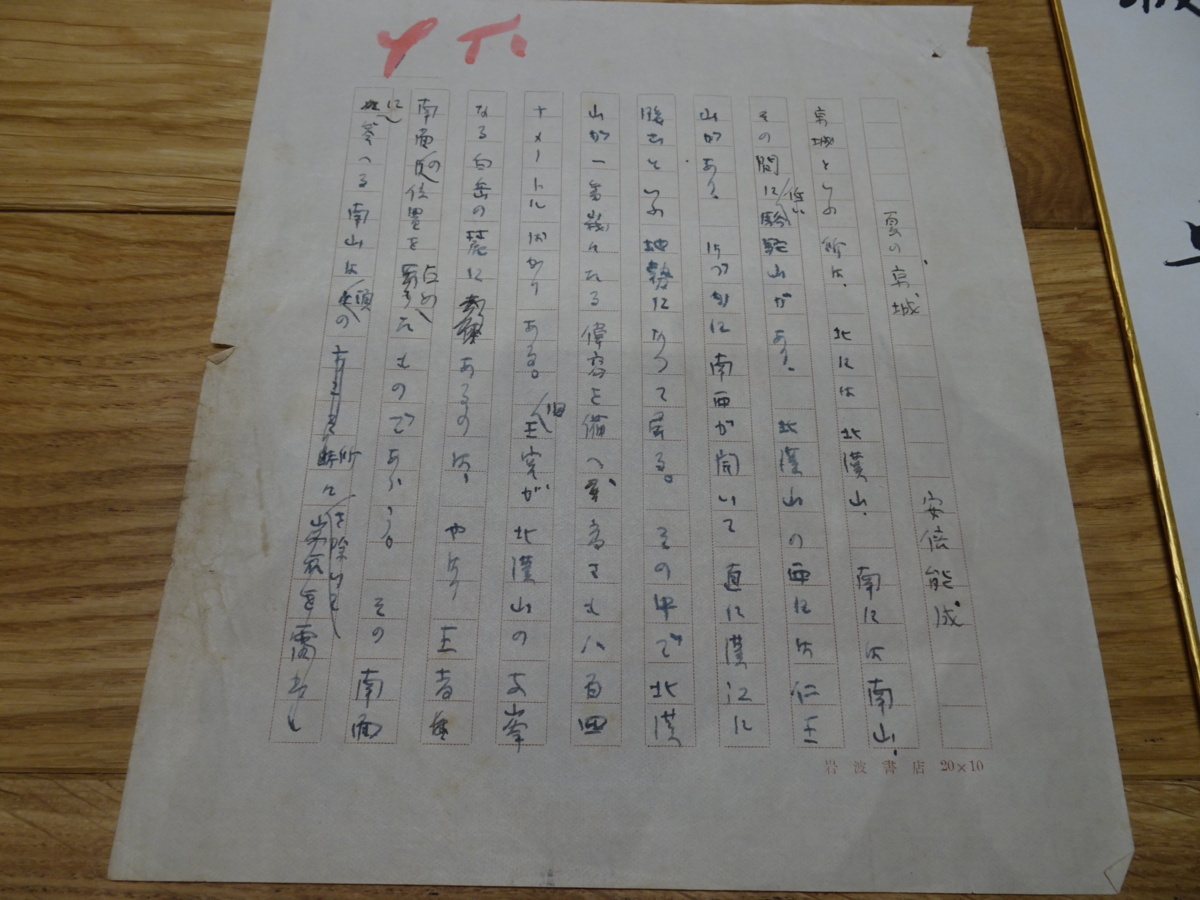 夏の京城　安倍能成
京城といふ所は、北には北漢山、南には南山、
その間に低い駱駝山があり、北漢山の西には仁王
山があり、わづかに南西が開いて直に漢江に
臨むといふ地勢になつて居る。その中で北漢
山が一番巍々たる偉容を備へ、高さも八百四
十メートルばかりある。旧王宮が北漢山の支峰
なる白岳の麓にあるのは、やはり王者
南面の位置を占めたものであらう。その南面
に聳へる南山は、頂の
所々を除いて
岩波書店 20×10